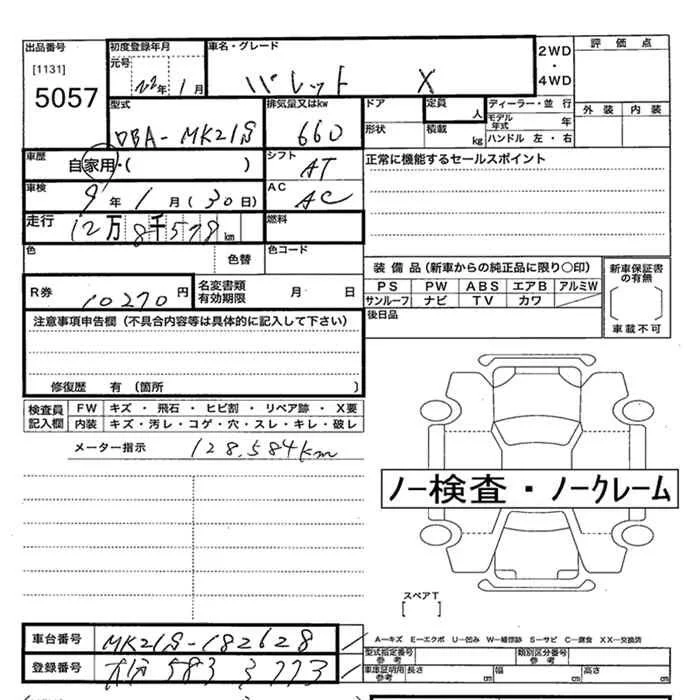 出品番号 初度登録年月 車名・グレード 2WD・4WD 評価点
[1131] 元号 22年 1月 パレット X
5057
外装 内装
型式 排気量又はkw ドア 定員 人 ディーラー・並 行
DBA-MK21S 660 形状 積載 kg モデル年式 年
ハンドル 左・右
車歴 自家用・( ) シフト AT 正常に機能するセールスポイント
車検 9年 1月(30日) AC AC
走行 12万8千578km 燃料
色 色替 色コード
装備品(新車からの純正品に限り〇印) 新車保証書の有無
R券 10270円 名変書類有効期限 月 日 PS PW ABS エアB アルミW
サンルーフ ナビ TV カワ
注意事項申告欄(不具合内容等は具体的に記入して下さい) 後日品 車載不可
修復歴 有(箇所 )
検査員記入欄 FW キズ・飛石・ヒビ割・リペア跡・X要
内装 キズ・汚レ・コゲ・穴・スレ・キレ・破レ
メーター指示 128,584km
ノー検査・ノークレーム
スペアT
[ ]
車台番号 MK21S-182628 A-キズ E-エクボ U-凹み W-補修跡 S-サビ C-腐食 XX-交換済
型式指定番号参考 類別区分番号参考
登録番号 583 3773 車庫証明用参考 長さ cm 幅 cm 高さ cm